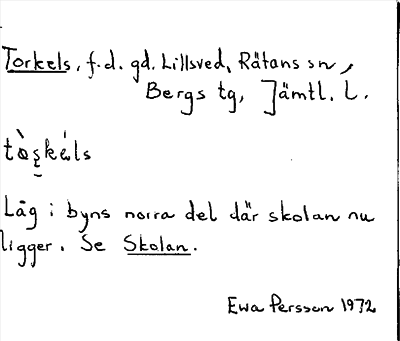 Torkels, f.d. gd. Lillsved, Rätans sn,
Bergs tg, Jämtl. L.
Låg i byns norra del där skolan nu
ligger. Se Skolan.
Ewa Persson 1972